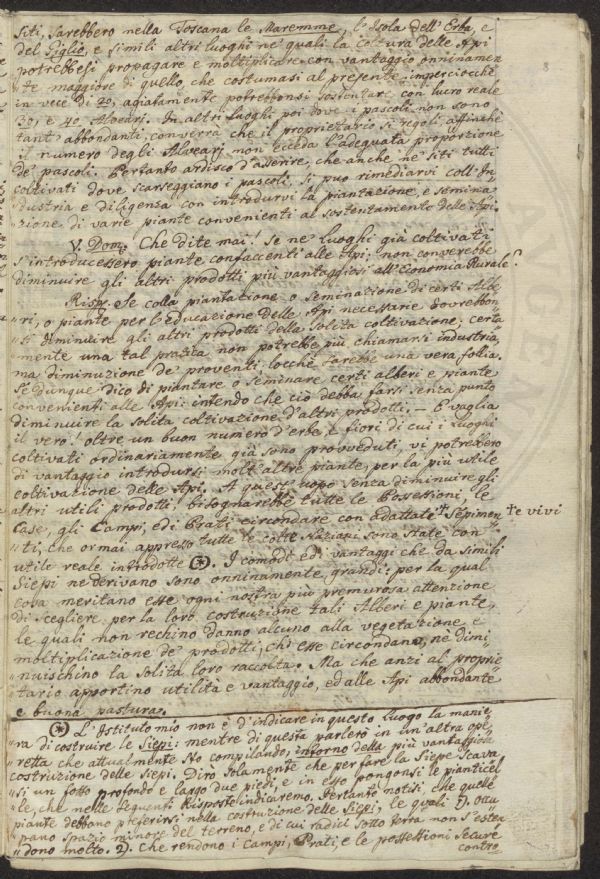 siti, sarebbero nella Toscana le Maremme, l'Isola dell'Erba, e
del Giglio, e simili altri luoghi ne' quali la Coltura delle Api
potrebbesi propagare e moltiplicare con vantaggio onninamen
"te maggiore di quello, che costumasi al presente imperciocchè
in vece di 20, agiatamente potrebbonsi sostentare con lucro reale
30, e 40 Alveari. In altri luoghi poi dove i pascoli non sono
tant' abbondanti, converrà che il proprietario si regoli affinchè
il numero degli Alvearj non ecceda l'adequata proporzione
de' pascoli. Pertanto ardisco d'asserire, che anche ne' siti tutti
coltivati dove scarseggiano i pascoli, si può rimediarvi coll' In
"dustria e diligenza con introdurvi la piantazione, e semina
"zione di varie piante convenienti al sostentamento delle Api.
V. Dom. Che dite mai! Se ne' luoghi già coltivati
s'introducessero piante confaccenti alle Api; non converebbe
diminuire gli altri prodotti più vantaggiosi all'Economia Rurale?
Risp. Se colla piantazione o seminazione di certi Albe
"ri, o piante per l'educazione delle Api necessarie dovrebbon
"si diminuire gli altri prodotti della solita coltivazione; certa
"mente una tal prattica non potrebbe più chiamarsi industria,
ma diminuzione de' proventi, locchè sarebbe una vera follia.
Se dunque dico di piantare o seminare certi alberi e piante
convenienti alle Api: intendo che ciò debba farsi senza punto
diminuire la solita coltivazione d'altri prodotti. — E vaglia
il vero! oltre un buon numero d'erbe, e fiori di cui i luoghi
coltivati ordinariamente già sono provveduti, vi potrebbero
di vantaggio introdursi molt'altre piante, per la più utile
coltivazione delle Api. A quest' uopo senza diminuire gli
altri utili prodotti bisognarebbe tutte le Possessioni, le
Case, gli Campi, ed i Prati circondare con adattate Sepimen te vivi
"ti, che ormai appresso tutte le colte Nazioni sono state con
utile reale introdotte (*). I comodi ed i vantaggi che da simili
Siepi ne derivano sono onninamente grandi: per la qual
cosa meritano esse ogni nostra più premurosa attenzione
di scegliere per la loro costruzione tali Alberi e piante,
le quali non rechino danno alcuno alla vegetazione e
moltiplicazione de' prodotti, ch'esse circondano, nè dimi
"nuischino la solita loro raccolta. Ma che anzi al proprie
"tario apportino utilità e vantaggio, ed alle Api abbondante
e buona pastura.
(*) L'Istituto mio non è d'indicare in questo luogo la manie
"ra di costruire le Siepi: mentre di questa parlerò in un'altra ope
"retta che attualmente sto compilando, intorno della più vantaggiosa
costruzione delle Siepi. Dirò solamente che per fare la Siepe scava
"si un fosso profondo e largo due piedi, e in esso pongonsi le pianticel
"le, che nelle seguenti Risposte indicaremo. Pertanto notisi che quelle
piante debbono preferirsi nella costruzione delle Siepi, le quali 1). occu
"pano spazio minore del terreno, e di cui radici sotto terra non s'esten
"dono molto. 2). Che rendono i Campi, Prati, e le possessioni secure
contro